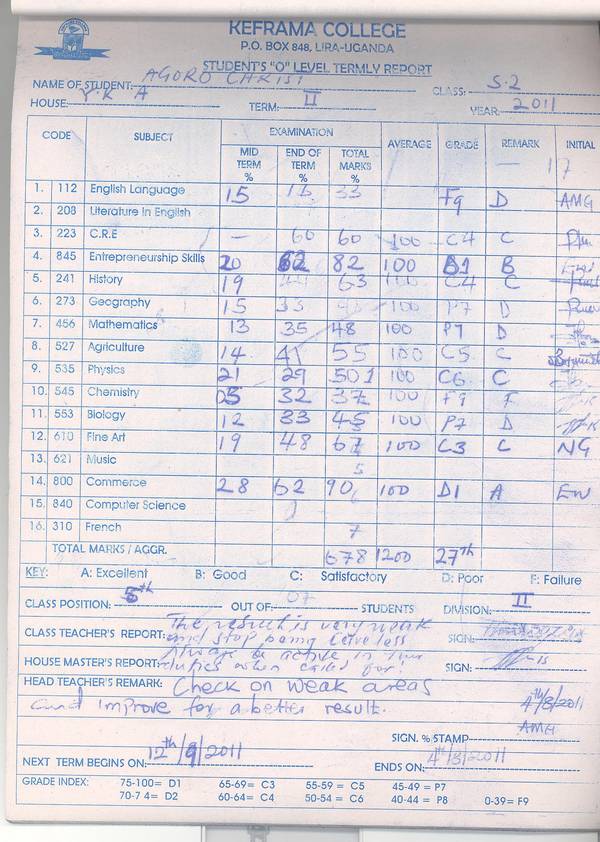 KEFRAMA COLLEGE
P.O. BOX 848, LIRA-UGANDA
STUDENT'S "O" LEVEL TERMLY REPORT
NAME OF STUDENT: AGORO CHRIST CLASS: S.2
HOUSE: Y.K A TERM: II YEAR: 2011
CODE SUBJECT EXAMINATION AVERAGE GRADE REMARK INITIAL
MID TERM % END OF TERM % TOTAL MARKS %
17
1. 112 English Language 15 33 F9 D AMG
2. 208 Literature in English
3. 223 C.R.E — 60 60 100 C4 C
4. 845 Entrepreneurship Skills 20 62 82 100 D1 B
5. 241 History 19 63 100 C4 C
6. 273 Geography 15 33 100 P7 D
7. 456 Mathematics 13 35 48 100 P7 D
8. 527 Agriculture 14 41 55 100 C5 C
9. 535 Physics 21 29 50 100 C6 C
10. 545 Chemistry 05 32 37 100 F9 F
11. 553 Biology 12 33 45 100 P7 D
12. 610 Fine Art 19 48 67 100 C3 C NG
13. 621 Music
14. 800 Commerce 28 62 90 100 D1 A EW
15. 840 Computer Science
16. 310 French
TOTAL MARKS / AGGR. 678 1200 27th
KEY: A: Excellent B: Good C: Satisfactory D: Poor F: Failure
CLASS POSITION: 5th OUT OF: 07 STUDENTS DIVISION: II
The result is very weak
CLASS TEACHER'S REPORT: and stop being careless SIGN:
Always be active in your
HOUSE MASTER'S REPORT: duties when called for! SIGN:
HEAD TEACHER'S REMARK: Check on weak areas
and improve for a better result. 4th/8/2011
AMG
SIGN. % STAMP
NEXT TERM BEGINS ON: 12th/9/2011 ENDS ON: 4th/8/2011
GRADE INDEX: 75-100= D1 65-69= C3 55-59 = C5 45-49 = P7
70-7 4= D2 60-64= C4 50-54 = C6 40-44 = P8 0-39= F9